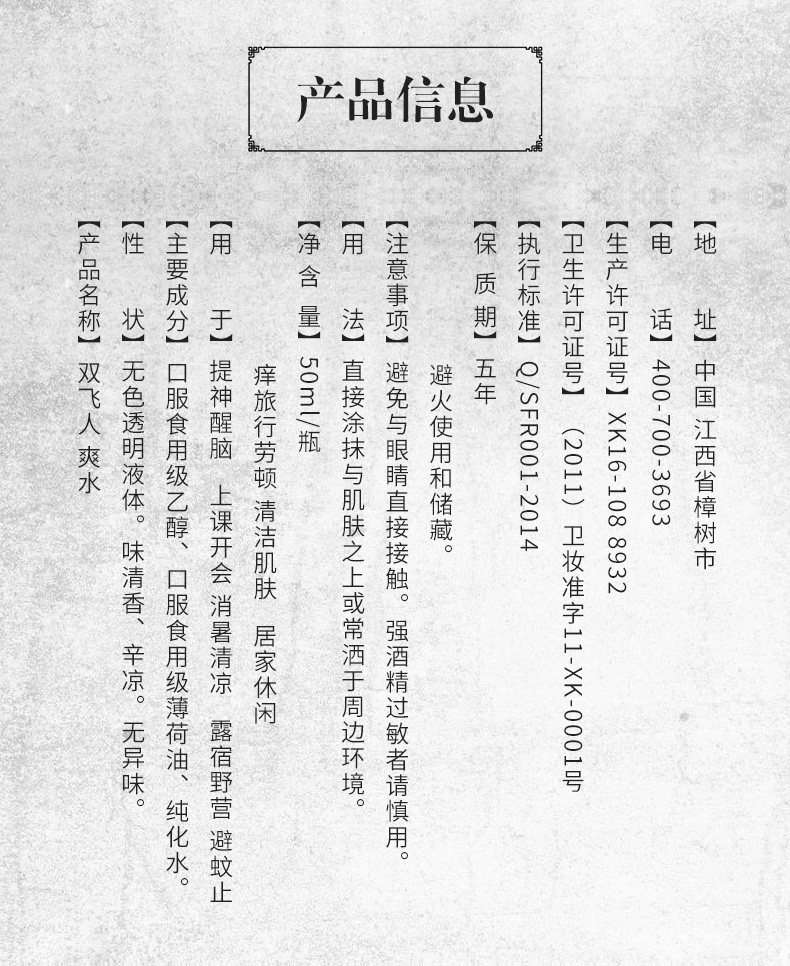 产品信息
【产品名称】双飞人 爽水
【性 状】无色透明液体。味清香、辛凉。无异味。
【主要成分】口服食用级乙醇、口服食用级薄荷油、纯化水。
【用 于】提神醒脑 上课开会 消暑清凉 露宿野营 避蚊止
痒旅行劳顿 清洁肌肤 居家休闲
【净 含 量】50ml/瓶
【用 法】直接涂抹与肌肤之上或常洒于周边环境。
【注意事项】避免与眼睛直接接触。强酒精过敏者请慎用。
避火使用和储藏。
【保 质 期】五年
【执行标准】Q/SFR001-2014
【卫生许可证号】（2011）卫妆准字11-XK-0001号
【生产许可证号】XK16-108 8932
【电 话】400-700-3693
【地 址】中国 江西省樟树市